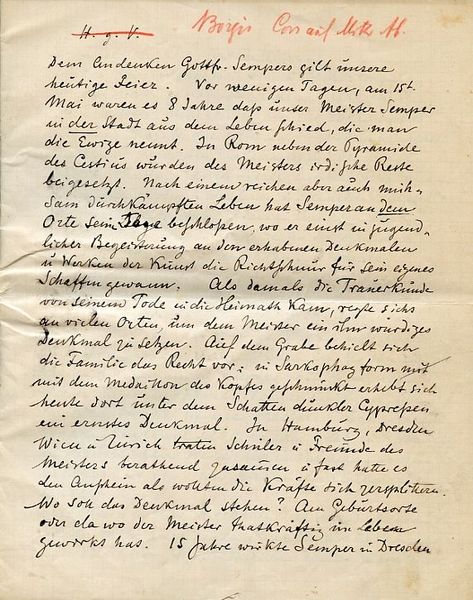 H. g. V.
Borgis
Dem Andenken Gottfr. Sempers gilt unsere
heutige Feier. Vor wenigen Tagen, am 15t
Mai waren es 8 Jahre daß unser Meister Semper
in der Stadt aus dem Leben schied, die man
die Ewige nennt. In Rom neben der Pyramide
des Cestius wurden des Meisters irdische Reste
beigesetzt. Nach einem reichen aber auch müh-
sam durchkämpften Leben hat Semper an dem
Orte sein Tage beschlossen, wo er einst in jugend-
licher Begeisterung an den erhabenen Denkmalen
u Werken der Kunst die Richtschnur für sein eigenes
Schaffen gewann. Als damals die Trauerkunde
von seinem Tode in die Heimath kam, regte sichs
an vielen Orten, um dem Meister ein ihm würdiges
Denkmal zu setzen. Auf dem Grabe behielt sich
die Familie das Recht vor: in Sarkophagform mit
mit dem Medaillon des Kopfes geschmückt erhebt sich
heute dort unter dem Schatten dunkler Cypressen
ein ernstes Denkmal. In Hamburg, Dresden
Wien u Zürich traten Schüler u Freunde des
Meisters berathend zusammen u fast hatte es
den Anschein als wollten die Kräfte sich zersplittern.
Wo soll das Denkmal stehen? Am Geburtsorte
oder da wo der Meister thatkräftig im Leben
gewirkt hat. 15 Jahre wirkte Semper in Dresden